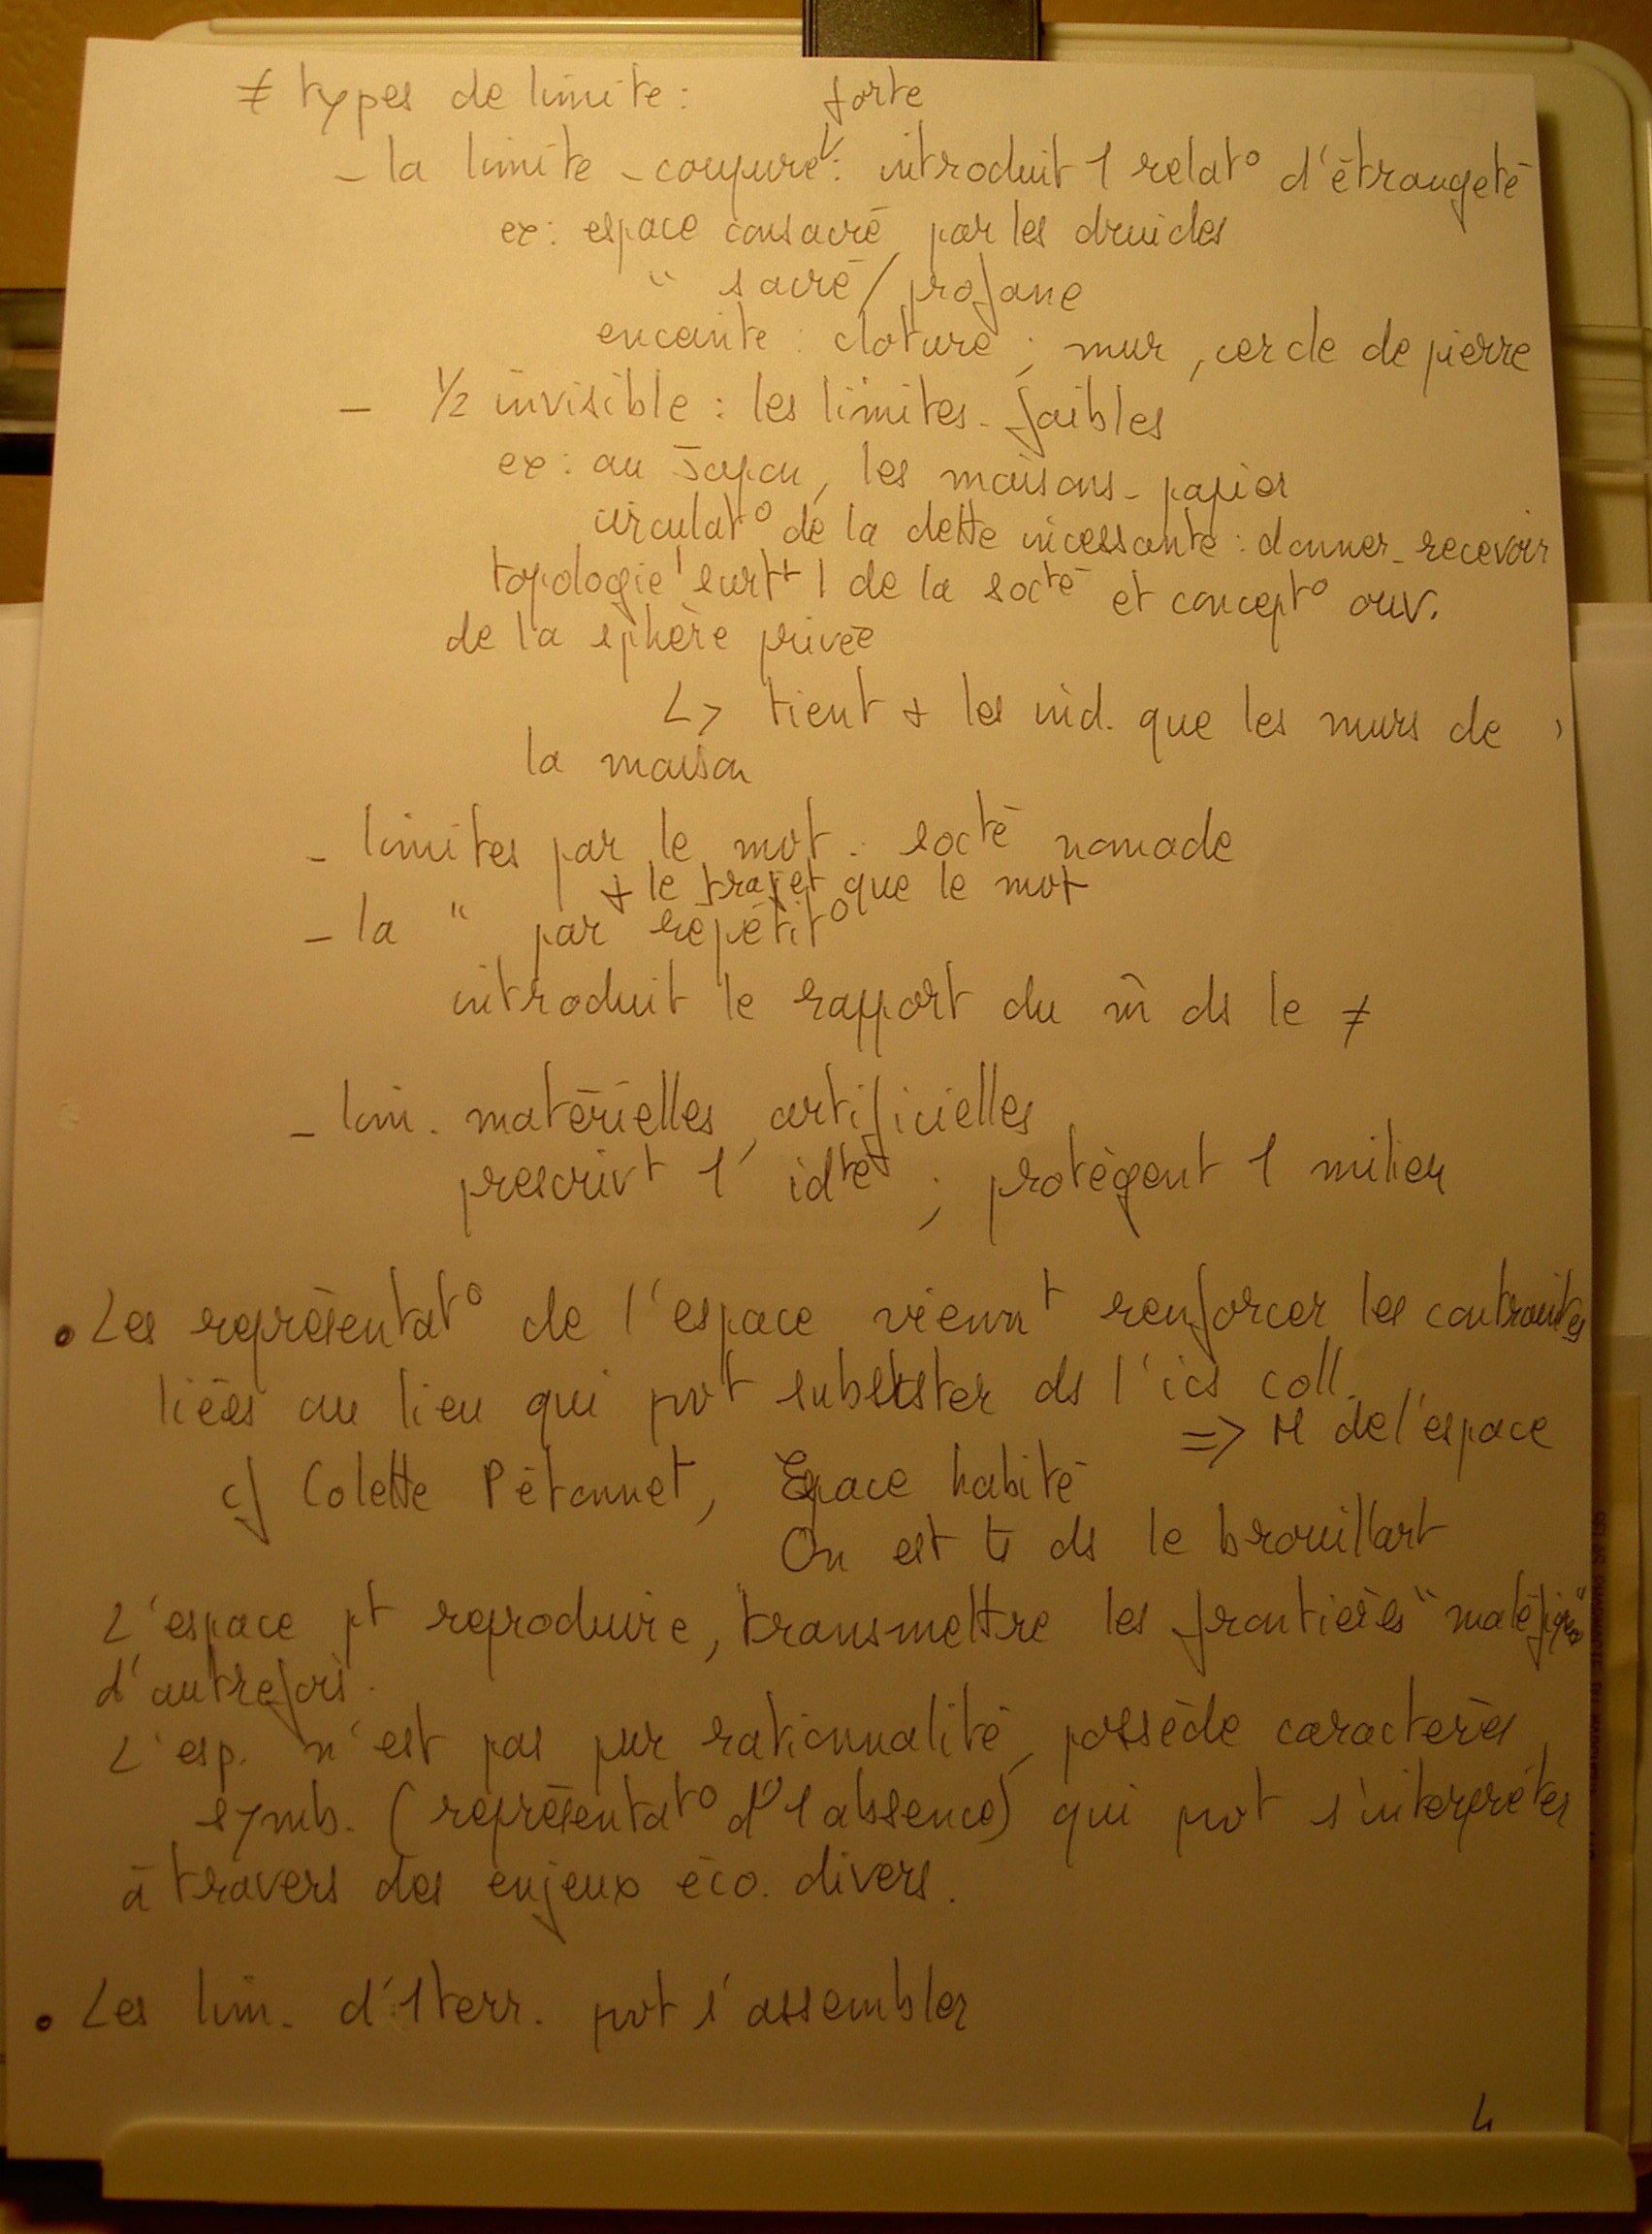 ≠ types de limite :
forte
- la limite - coupure : introduit 1 relat° d'étrangeté
ex : espace consacré par les druides
" sacré / profane
enceinte : cloture ; mur, cercle de pierre
- 1/2 invisible : les limites - faibles
ex : au Japon, les maisons - papier
circulat° de la dette incessante : donner - recevoir
topologie surtt de la socté et concept° ouv.
de la sphère privée
↳ tient + les ind. que les murs de
la maison
- limites par le mot : socté nomade
+ le trajet que le mot
- la " par répétit°
introduit le rapport du m̂ ds le ≠
- lim. matérielles, artificielles
prescrivt l'idté ; protègent 1 milieu
• Les représentat° de l'espace viennt renforcer les contraintes
liées au lieu qui pvt subsister ds l'ics coll.
=> M de l'espace
cf Colette Pétonnet, Espace habité
On est ts ds le brouillart
L'espace pt reproduire, transmettre les frontières "maléfiques"
d'autrefois.
L'esp. n'est pas pur rationnalité, possède caractères
symb. (représentat° d'1 absence) qui pvt s'interpréter
à travers des enjeux éco. divers.
• Les lim. d'1 terr. pvt s'assembler
4